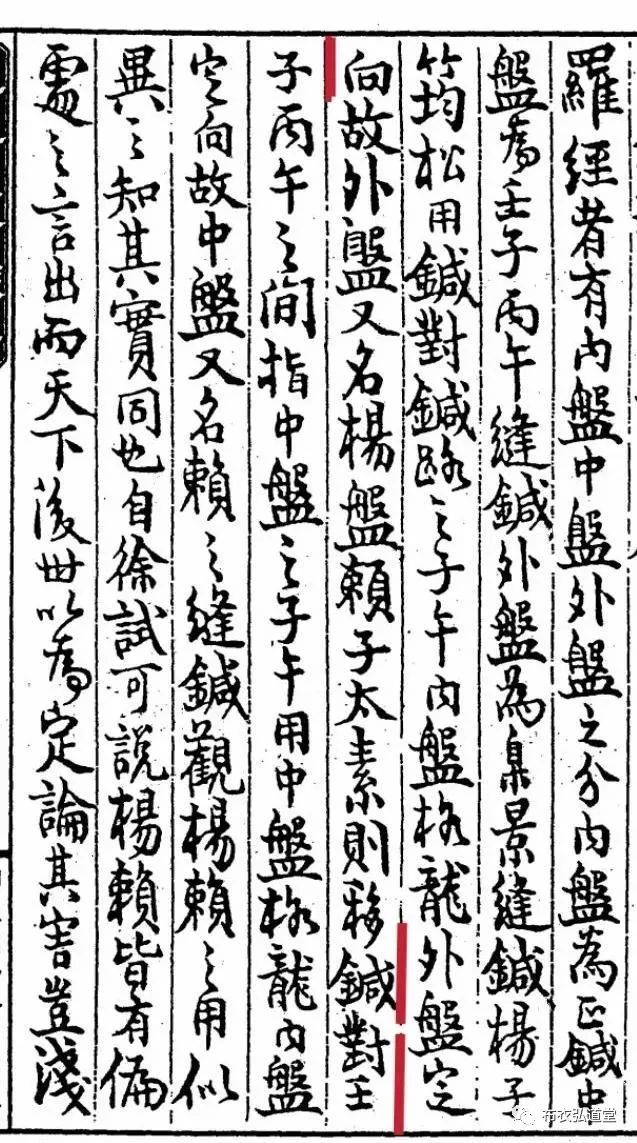 羅經者有內盤中盤外盤之分內盤為正鍼中
盤為壬子丙午縫鍼外盤為臬景縫鍼楊子
筠松用鍼對鍼路之子午內盤格龍外盤定
向故外盤又名楊盤賴子太素則移鍼對壬
子丙午之間指中盤之子午用中盤格龍內盤
定向故中盤又名賴之縫鍼觀楊賴之用似
異之知其實同也自徐試可說楊賴皆有偏
處之言出而天下後世以為定論其害豈淺
布衣弘道堂